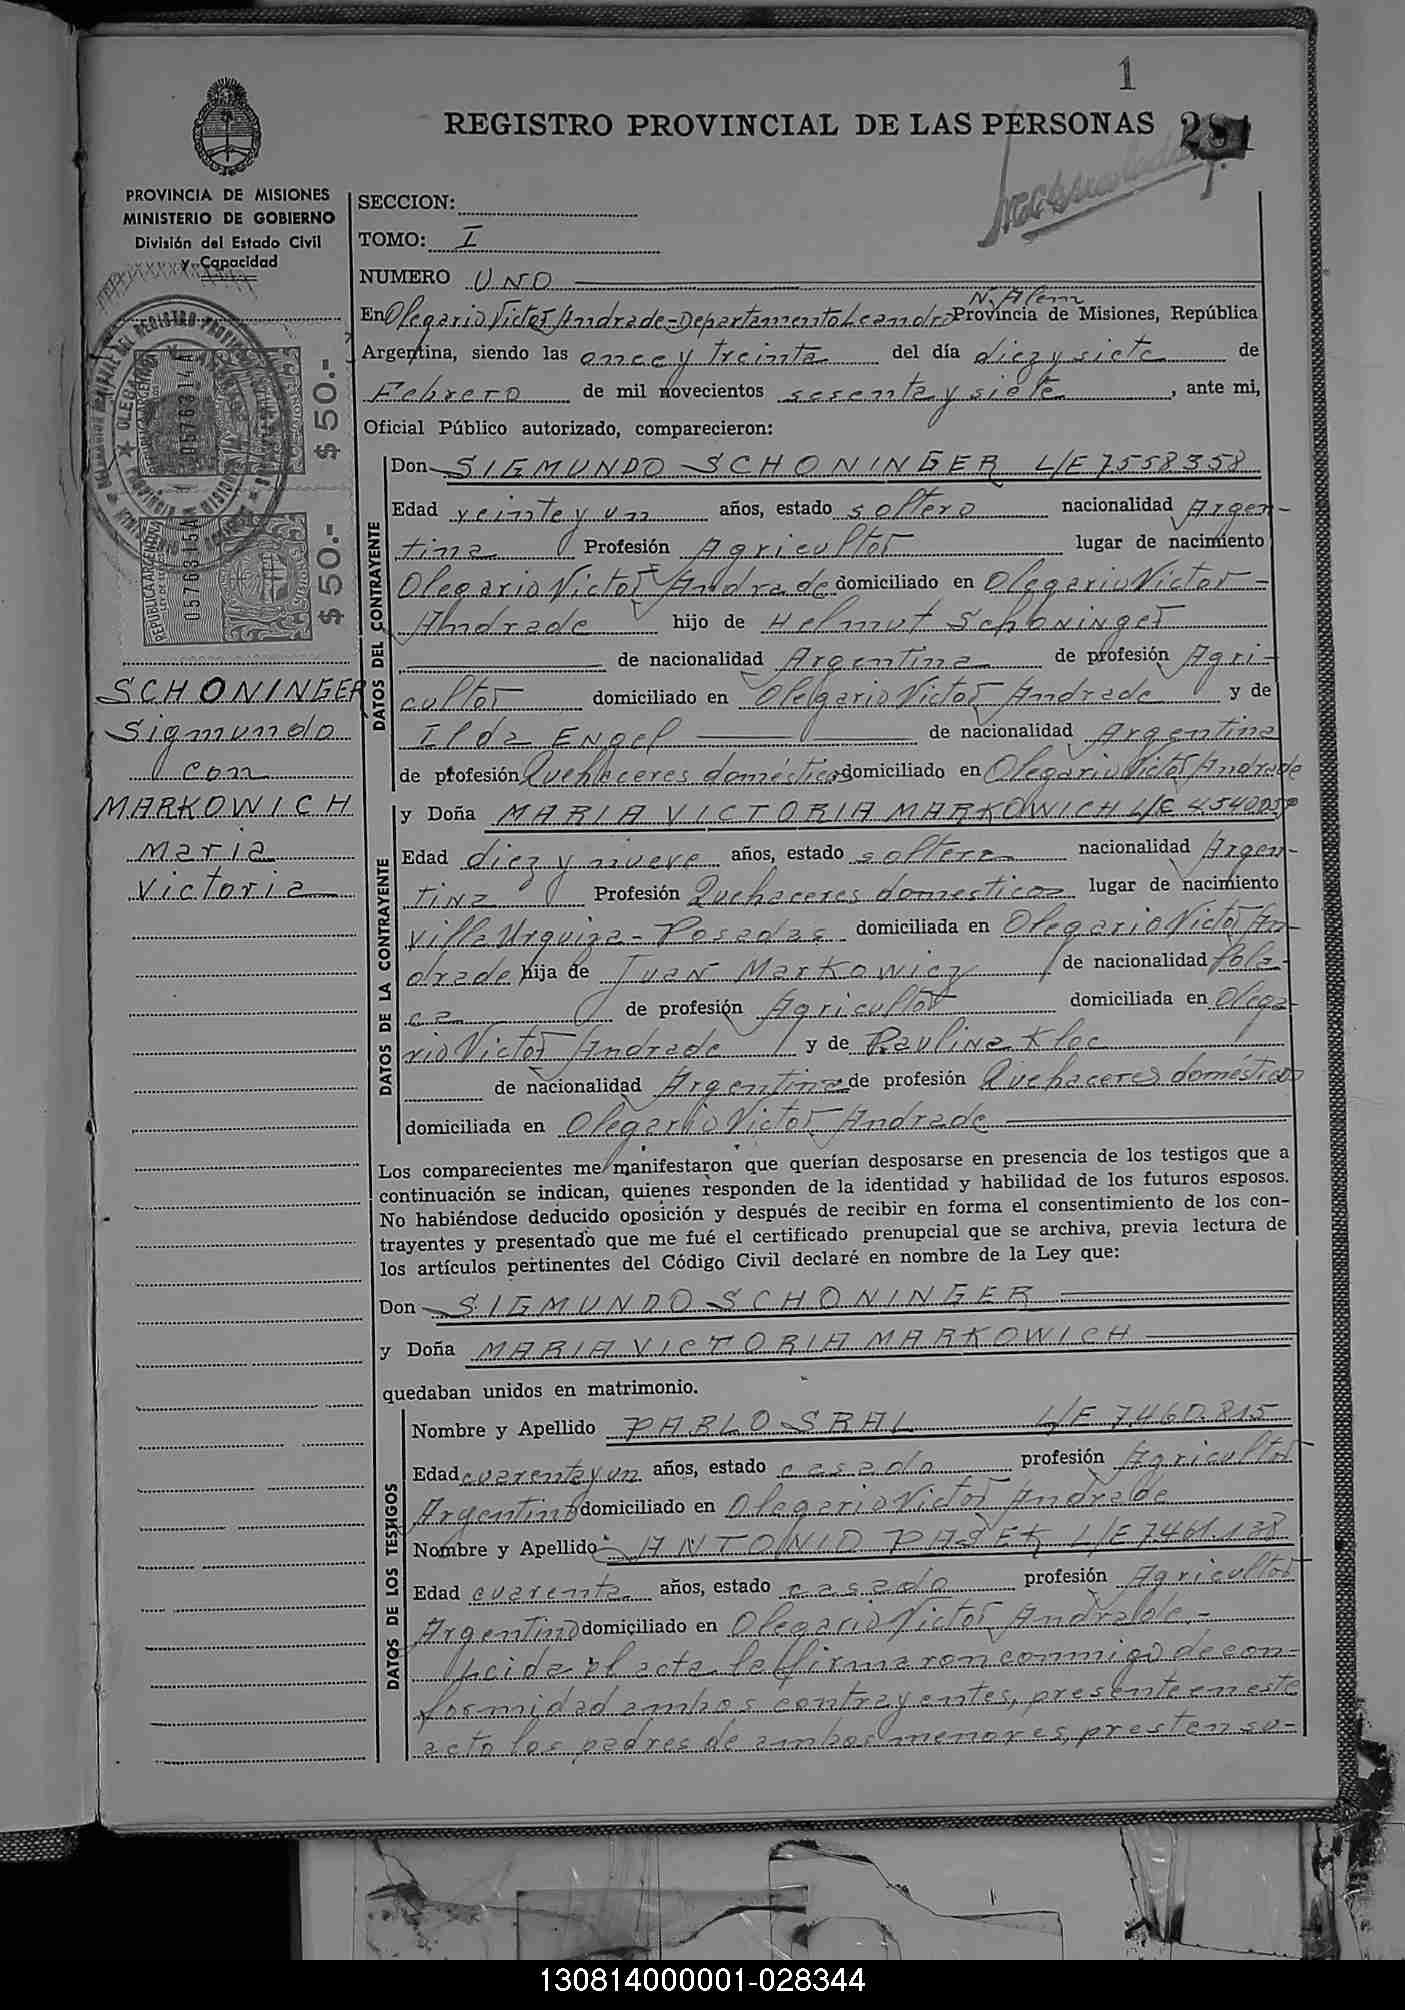 1
REGISTRO PROVINCIAL DE LAS PERSONAS
PROVINCIA DE MISIONES
MINISTERIO DE GOBIERNO
División del Estado Civil
y Capacidad
$ 50.-
057631 4 A
$ 50.-
057631 5 A
SCHONINGER
Sigmundo
con
MARKOWICH
Maria
Victoria
SECCION:
TOMO: I
NUMERO UNO
N. Alem
En Olegario Victor Andrade-Departamento Leandro Provincia de Misiones, República
Argentina, siendo las once y treinta del día diez y siete de
Febrero de mil novecientos sesenta y siete, ante mi,
Oficial Público autorizado, comparecieron:
DATOS DEL CONTRAYENTE
Don SIGMUNDO SCHONINGER L/E 7558358
Edad veinte y un años, estado soltero nacionalidad Argen-
tina Profesión Agricultor lugar de nacimiento
Olegario Victor Andrade domiciliado en Olegario Victor
Andrade hijo de Helmut Schoninger
de nacionalidad Argentina de profesión Agri-
cultor domiciliado en Olegario Victor Andrade y de
Ilda Engel de nacionalidad Argentina
de profesión Quehaceres domésticos domiciliado en Olegario Victor Andrade
DATOS DE LA CONTRAYENTE
y Doña MARIA VICTORIA MARKOWICH L/C
Edad diez y nueve años, estado soltera nacionalidad Argen-
tina Profesión Quehaceres domesticos lugar de nacimiento
Villa Urquiza - Posadas domiciliada en Olegario Victor An-
drade hija de Juan Markowicz de nacionalidad Pola-
ca de profesión Agricultor domiciliada en Olega-
rio Victor Andrade y de Paulina Kloc
de nacionalidad Argentina de profesión Quehaceres domésticos
domiciliada en Olegario Victor Andrade
Los comparecientes me manifestaron que querían desposarse en presencia de los testigos que a
continuación se indican, quienes responden de la identidad y habilidad de los futuros esposos.
No habiéndose deducido oposición y después de recibir en forma el consentimiento de los con-
trayentes y presentado que me fué el certificado prenupcial que se archiva, previa lectura de
los artículos pertinentes del Código Civil declaré en nombre de la Ley que:
Don SIGMUNDO SCHONINGER
y Doña MARIA VICTORIA MARKOWICH
quedaban unidos en matrimonio.
DATOS DE LOS TESTIGOS
Nombre y Apellido PABLO SRAL L/E 7.460.815
Edad cuarenta y un años, estado casado profesión Agricultor
Argentino domiciliado en Olegario Victor Andrade
Nombre y Apellido ANTONIO PASEK L/E 7.461.138
Edad cuarenta años, estado casado profesión Agricultor
Argentino domiciliado en Olegario Victor Andrade-
Leida el acta la firmaron conmigo de con-
formidad ambos contrayentes, presente en este
acto los padres de ambos menores, presten su-
130814000001-028344